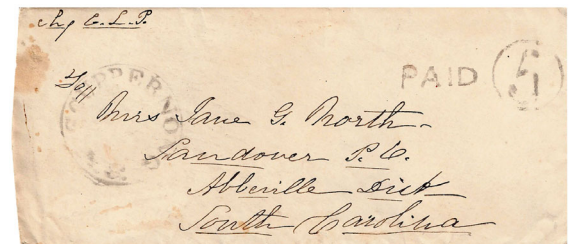 chg C. L. P.
PAID 5
Mrs Jane G. North
Sandover P. O.
Abbeville Dist
South Carolina